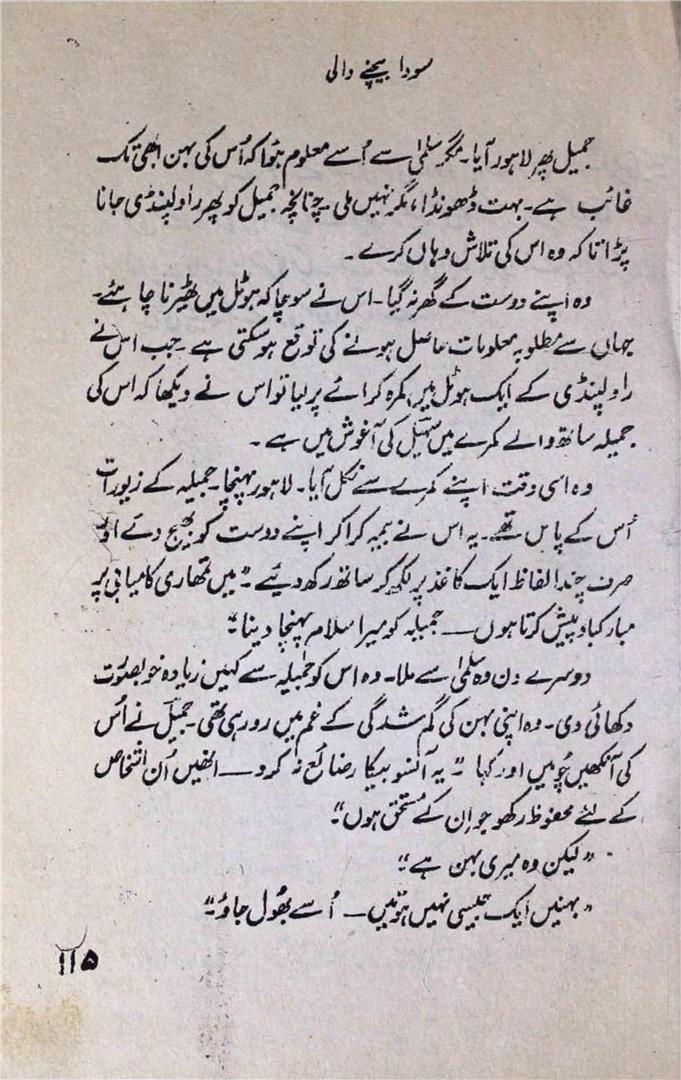 سودا بیچنے والی
جمیل پھر لاہور آیا۔ مگر سلمیٰ سے اُسے معلوم ہوا کہ اُس کی بہن ابھی تک
غائب ہے۔ بہت ڈھونڈا، مگر نہیں ملی۔ چنانچہ جمیل کو پھر راولپنڈی جانا
پڑا تاکہ وہ اس کی تلاش وہاں کرے۔
وہ اپنے دوست کے گھر نہ گیا۔ اس نے سوچا کہ ہوٹل میں ٹھیرنا چاہئے۔
جہاں سے مطلوبہ معلومات حاصل ہونے کی توقع ہوسکتی ہے۔ جب اس نے
راولپنڈی کے ایک ہوٹل میں کمرہ کرائے پر لیا تو اس نے دیکھا کہ اس کی
جمیلہ ساتھ والے کمرے میں سہیل کی آغوش میں ہے۔
وہ اسی وقت اپنے کمرے سے نکل آیا۔ لاہور پہنچا۔ جمیلہ کے زیورات
اُس کے پاس تھے۔ یہ اس نے بیمہ کرا کر اپنے دوست کو بھیج دئے اور
صرف چند الفاظ ایک کاغذ پر لکھ کر ساتھ رکھ دیئے۔ "میں تمھاری کامیابی پر
مبارکباد پیش کرتا ہوں — جمیلہ کو میرا سلام پہنچا دینا"
دوسرے دن وہ سلمیٰ سے ملا۔ وہ اس کو جمیلہ سے کہیں زیادہ خوبصورت
دکھائی دی۔ وہ اپنی بہن کی گم شدگی کے غم میں رو رہی تھی۔ جمیل نے اُس
کی آنکھیں چومیں اور کہا "یہ آنسو بیکار ضائع نہ کرو — انھیں اُن اشخاص
کے لئے محفوظ رکھو جو ان کے مستحق ہوں"۔
"لیکن وہ میری بہن ہے"۔
"بہنیں ایک جیسی نہیں ہوتیں — اُسے بھُول جاؤ"۔
۱۱۵